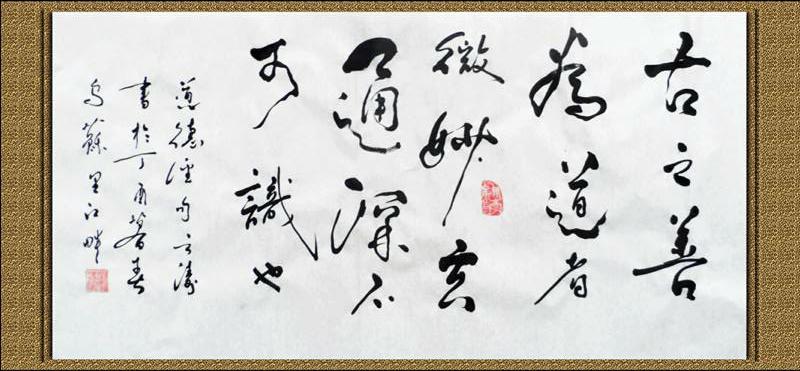 古之善
為道者
微妙玄
通深不
可識也
道德經句云濤
書於丁酉暮春
烏蘇里江畔